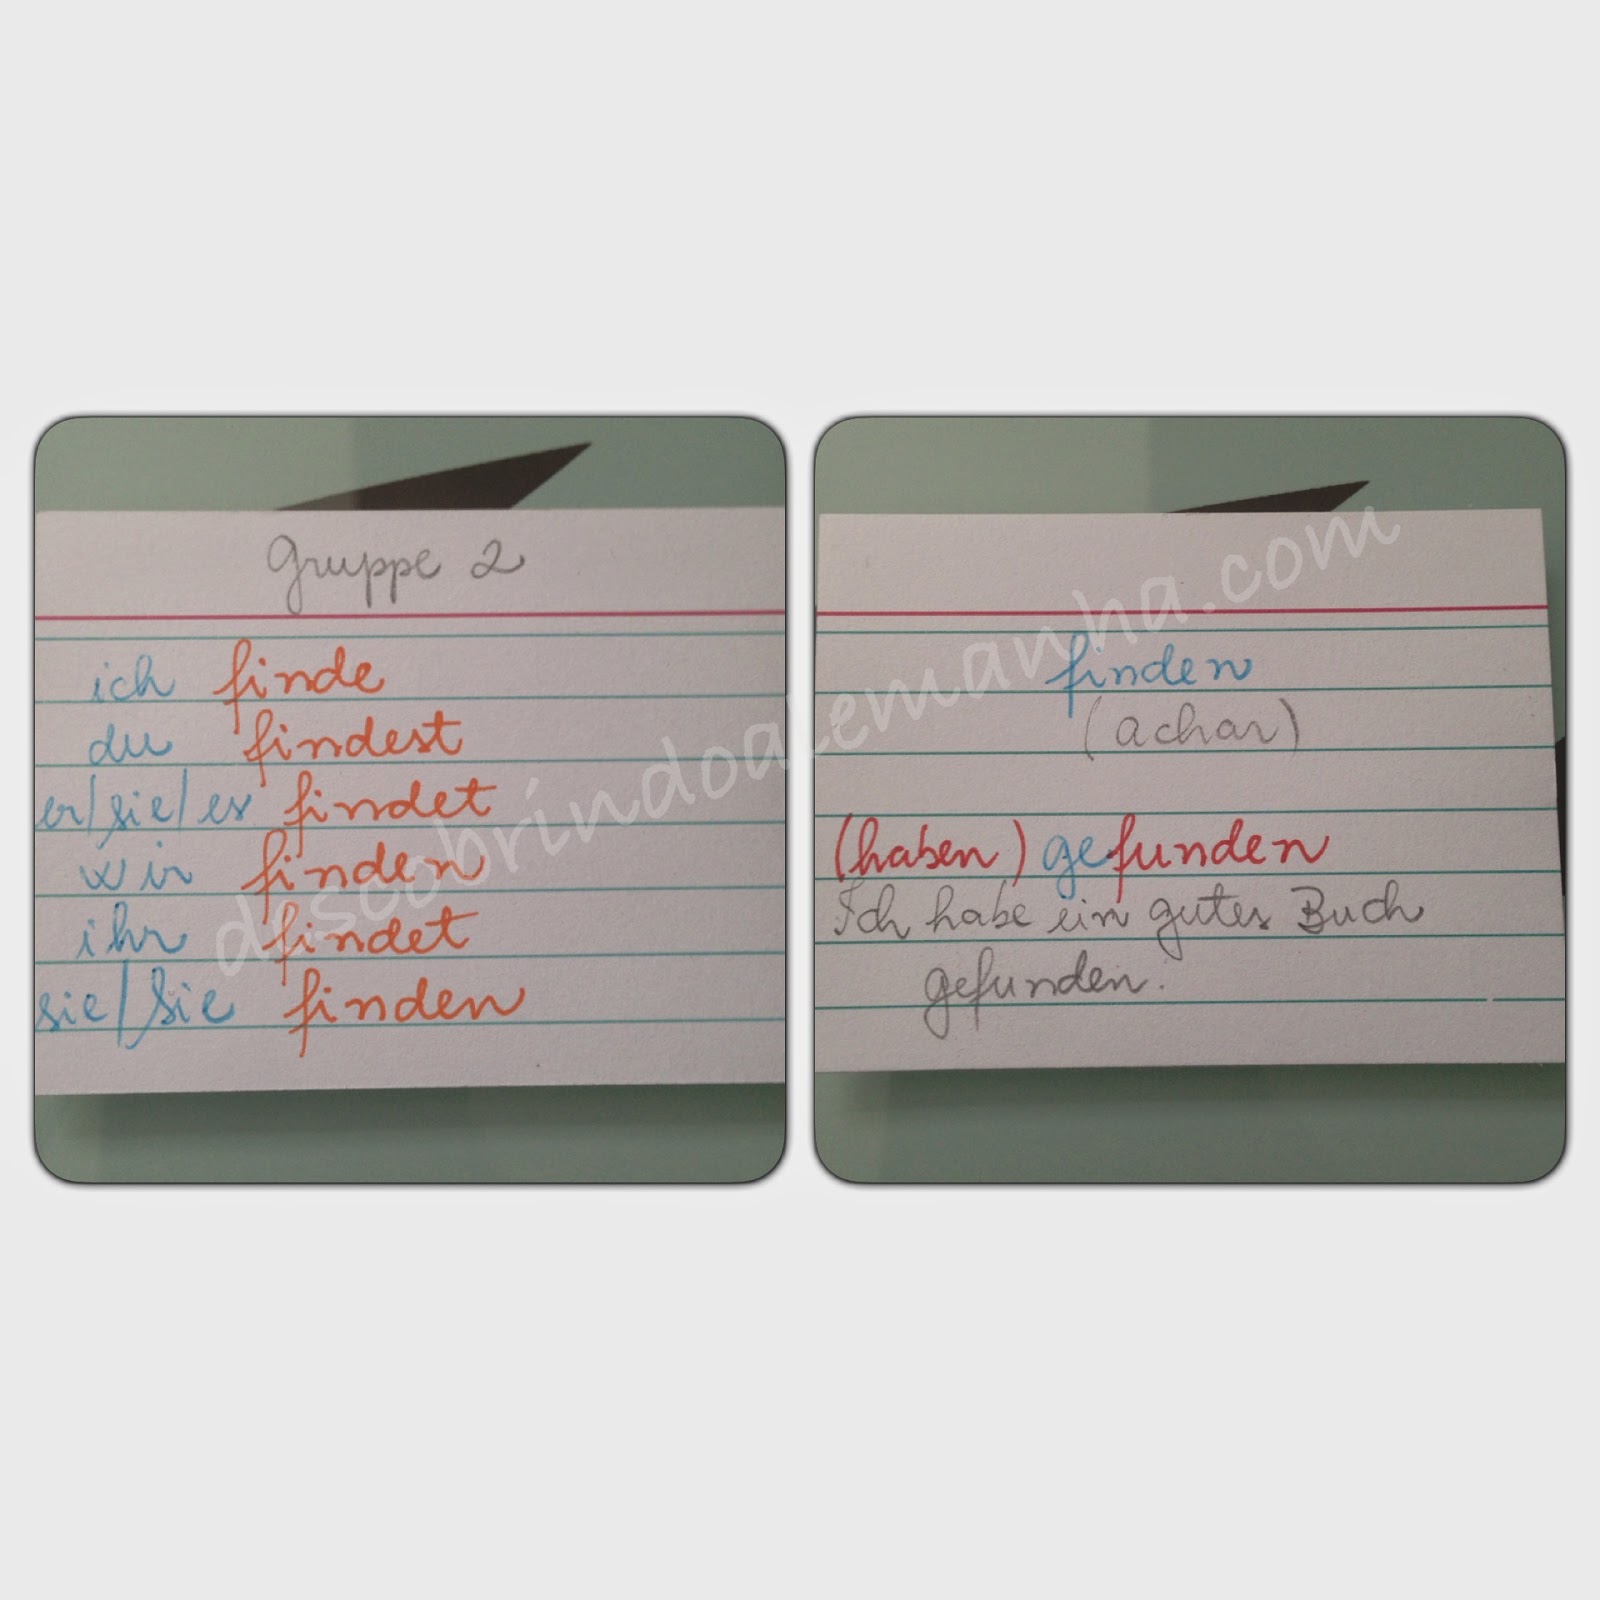 Gruppe 2
ich finde
du findest
er/sie/es findet
wir finden
ihr findet
sie/Sie finden
finden
(achar)
(haben) gefunden
Ich habe ein gutes Buch
gefunden.
descobrindoalemanha.com